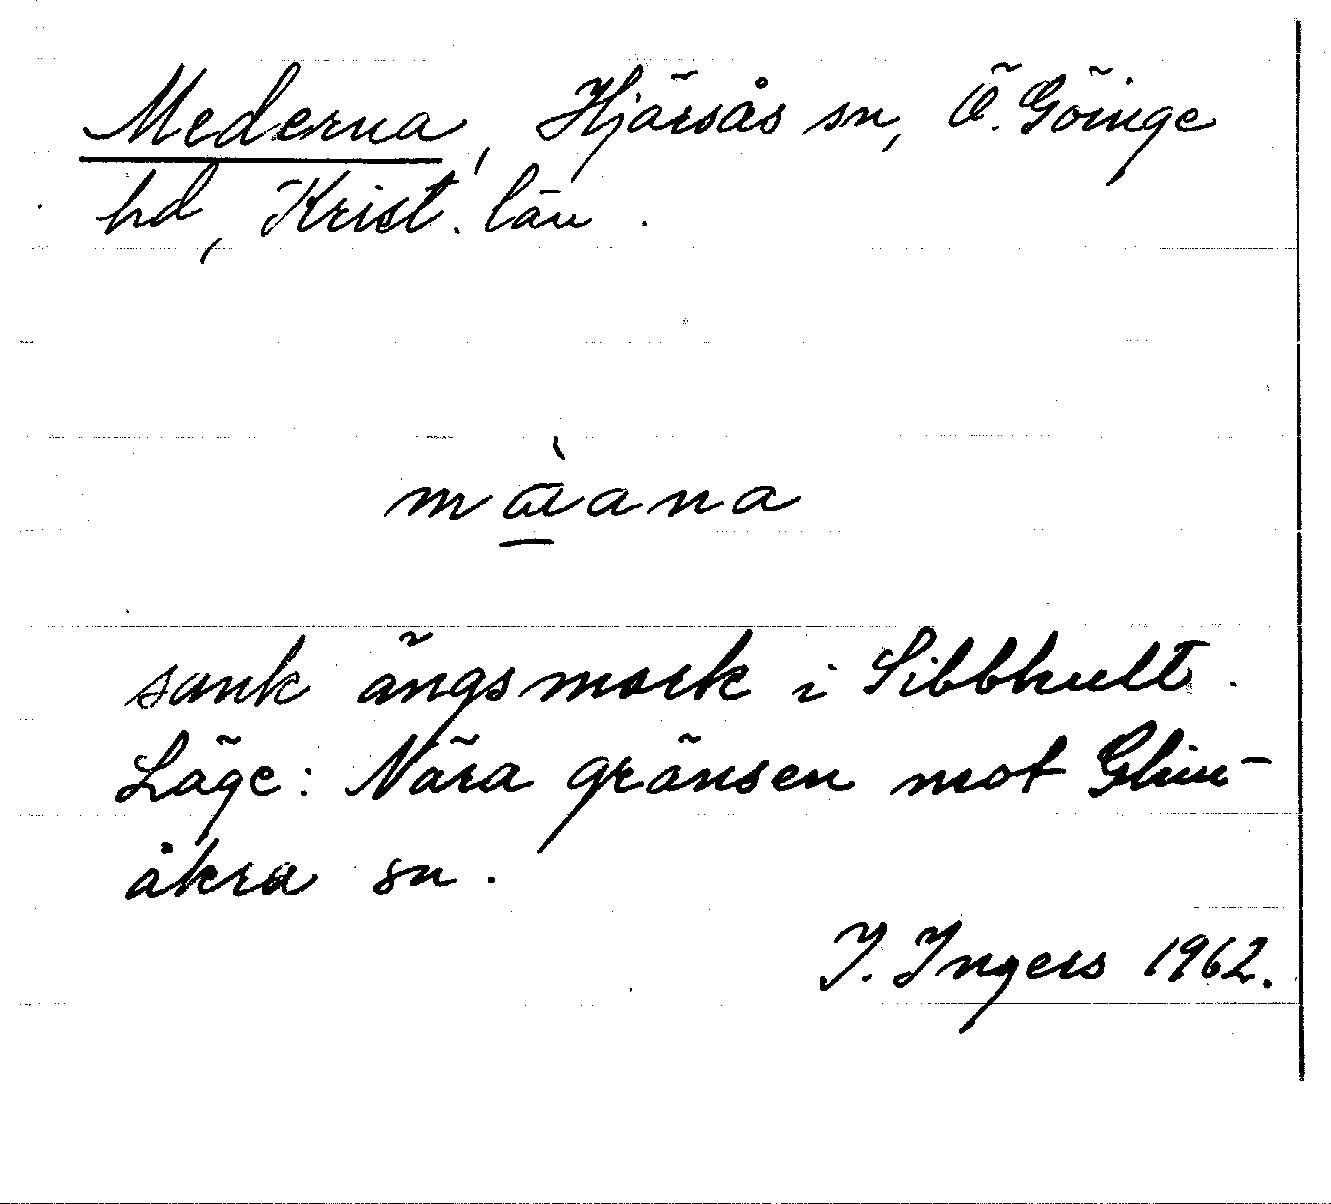 Mederna, Hjärsås sn, Ö. Göinge
hd, Krist. län.
sank ängsmark i Sibbhult.
Läge: Nära gränsen mot Glim-
åkra sn.
I. Ingers 1962.